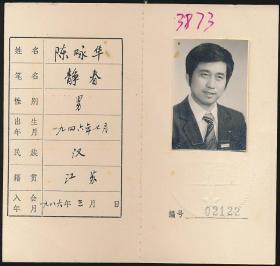 3873
姓名 陈咏华
笔名 静春
性别 男
出生年月 一九四六年七月
民族 汉
籍贯 江苏
入会年月 一九八六年三月 日
编号 02122